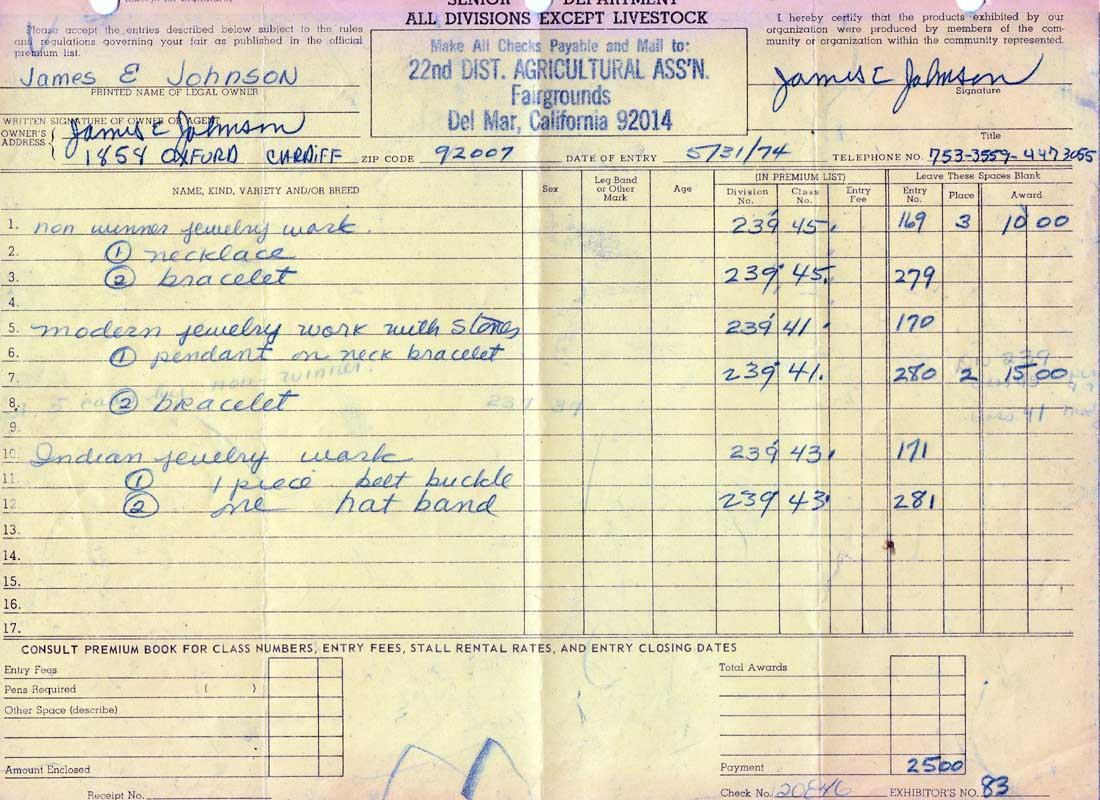 SENIOR DEPARTMENT
ALL DIVISIONS EXCEPT LIVESTOCK
Please accept the entries described below subject to the rules
and regulations governing your fair as published in the official
premium list.
James E Johnson
PRINTED NAME OF LEGAL OWNER
WRITTEN SIGNATURE OF OWNER OR AGENT
James E Johnson
OWNER'S ADDRESS 1858 OXFORD CARDIFF ZIP CODE 92007 DATE OF ENTRY 5/31/74 TELEPHONE NO. 753-3559-4473055
Make All Checks Payable and Mail to:
22nd DIST. AGRICULTURAL ASS'N.
Fairgrounds
Del Mar, California 92014
I hereby certify that the products exhibited by our
organization were produced by members of the com-
munity or organization within the community represented.
James E Johnson
Signature
Title
NAME, KIND, VARIETY AND/OR BREED Sex Leg Band or Other Mark Age (IN PREMIUM LIST) Leave These Spaces Blank
Division No. Class No. Entry Fee Entry No. Place Award
1. non winner jewelry work. 239 45. 169 3 10 00
2. ① necklace
3. ② bracelet 239 45. 279
4.
5. modern jewelry work with stones 239 41. 170
6. ① pendant on neck bracelet
7. 239 41. 280 2 15 00
8. ② bracelet
9.
10. Indian jewelry work 239 43. 171
11. ① 1 piece belt buckle
12. ② one hat band 239 43. 281
13.
14.
15.
16.
17.
CONSULT PREMIUM BOOK FOR CLASS NUMBERS, ENTRY FEES, STALL RENTAL RATES, AND ENTRY CLOSING DATES
Entry Fees
Pens Required ( )
Other Space (describe)
Amount Enclosed
Receipt No.
Total Awards
Payment 25 00
Check No. 20846 EXHIBITOR'S NO. 83